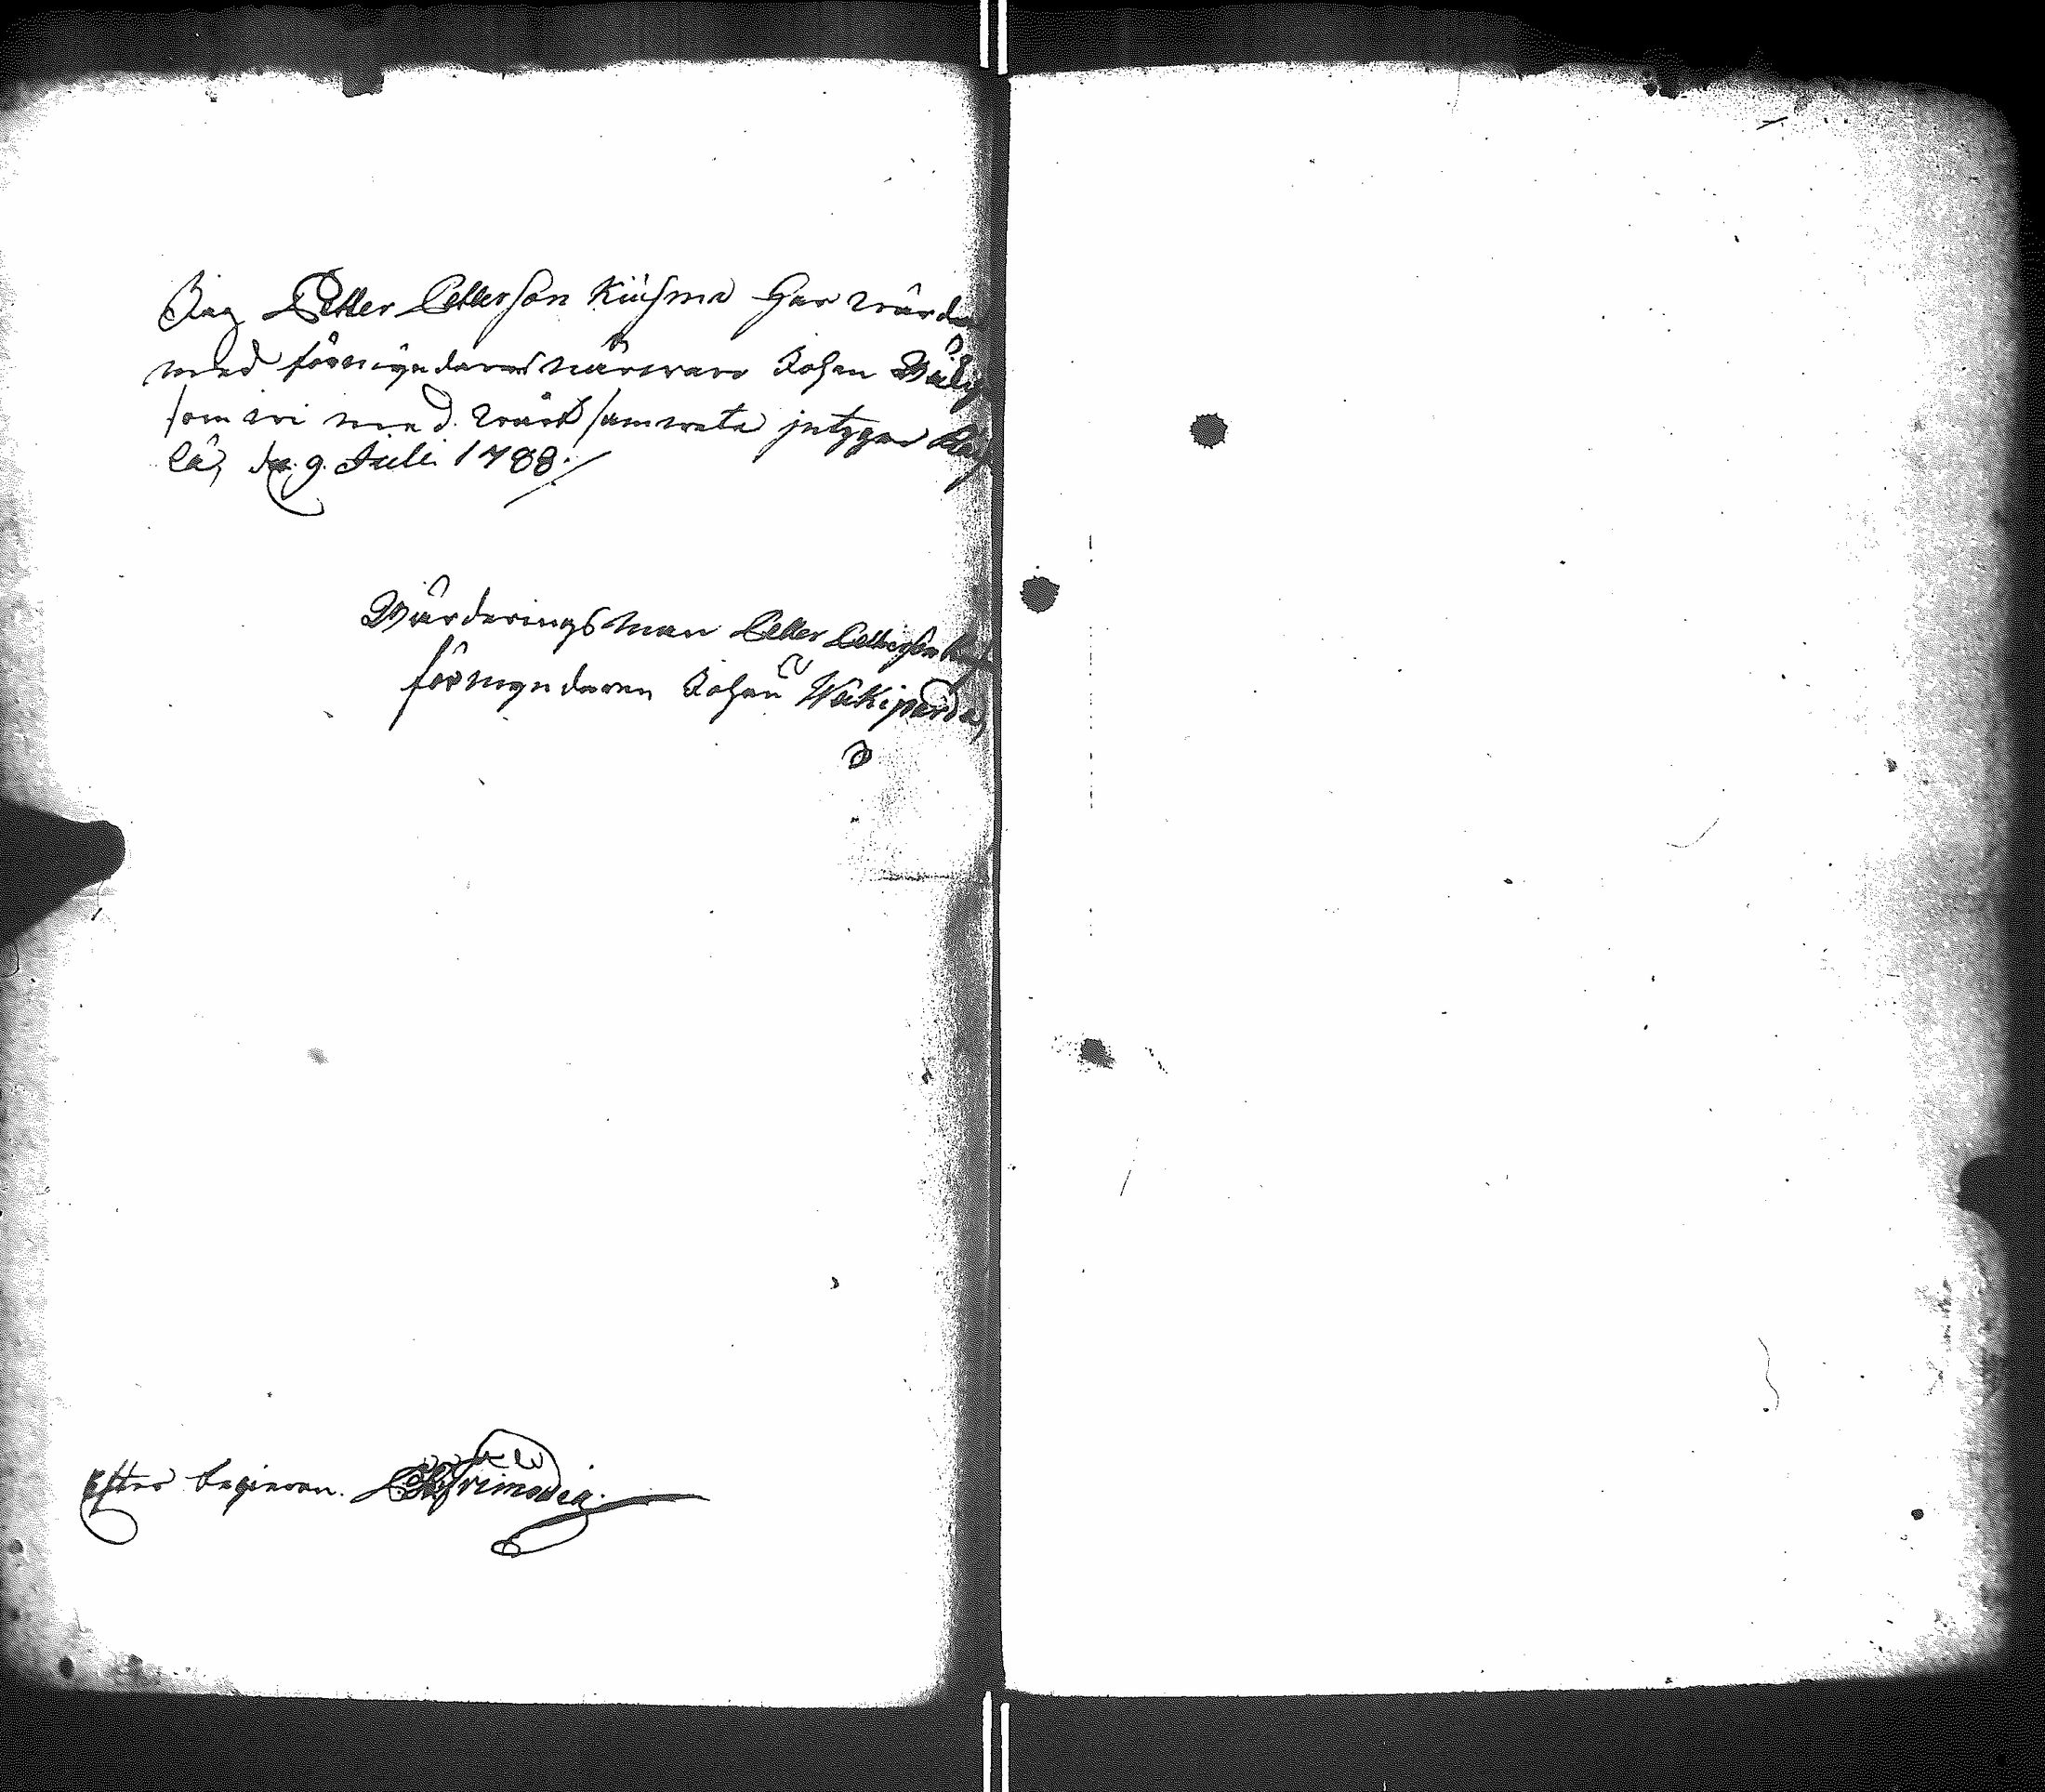 Jag Petter Petterson Kuusma Har wärde
med förmyndarens närwaro Johan Wäki
som wi med wårt samwete intygar
lä, den 9. Juli 1788.
Wärderings Man Petter Petterson
förmyndaren Johan Wäkipärdä,
Efter begieran.